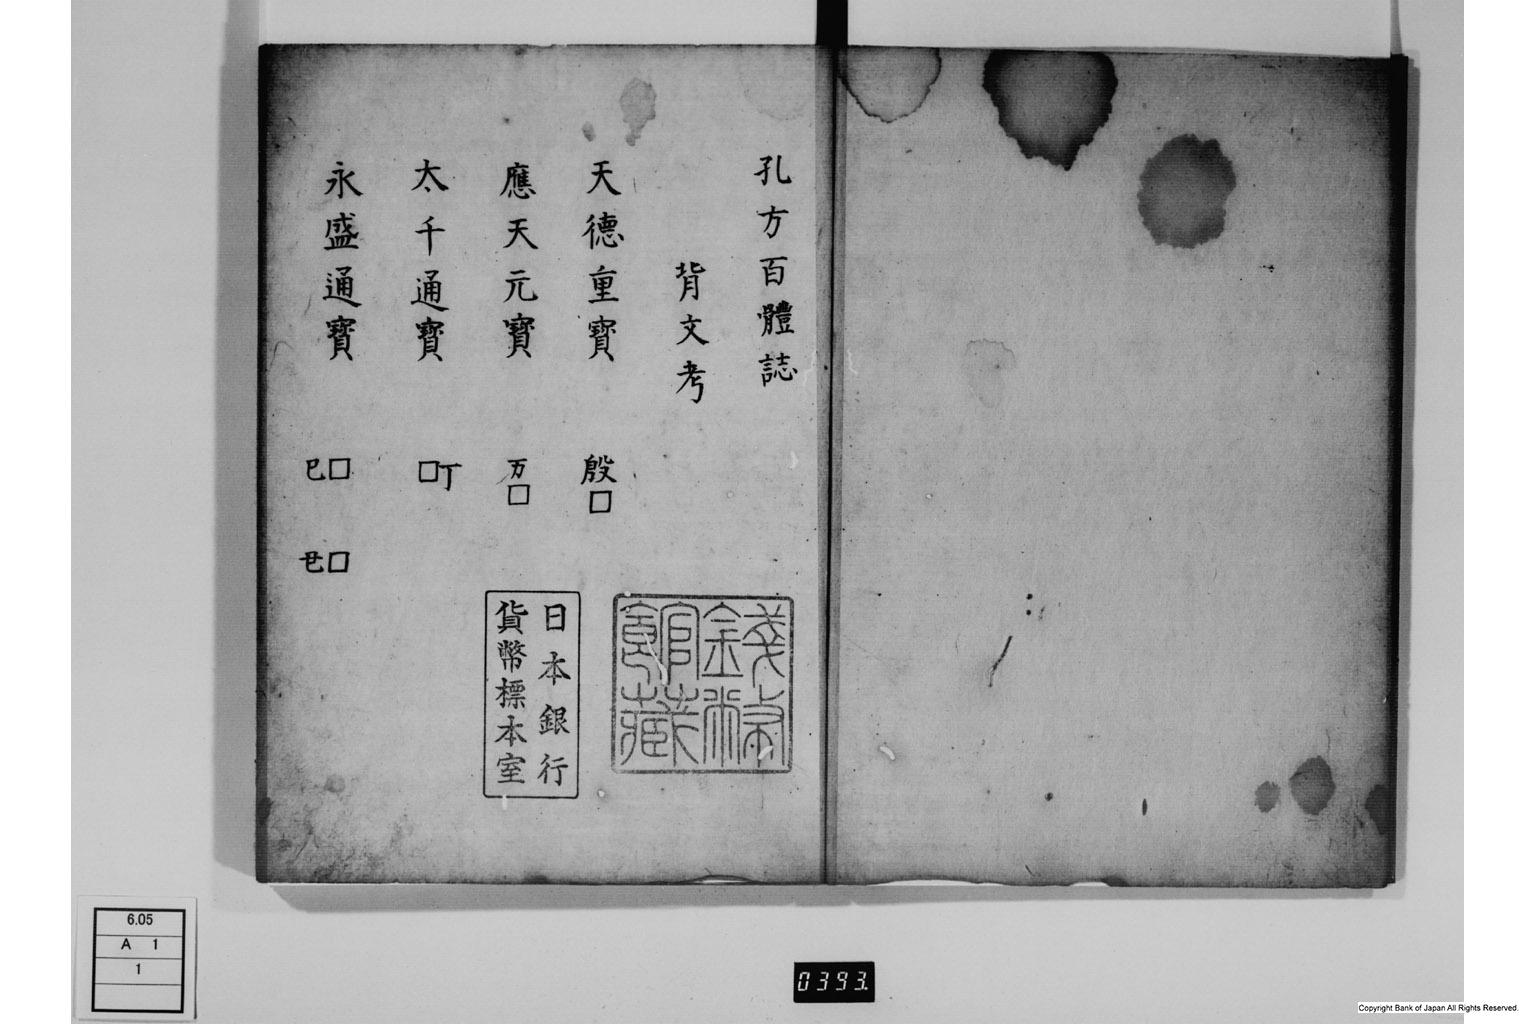 孔方百體誌
背文考
天德重寶 殷□
應天元寶 万□
太千通寶 □丁
永盛通寶 巳□ 㔺□
錢幣館藏
日本銀行
貨幣標本室
6.05
A 1
1
0393
Copyright Bank of Japan All Rights Reserved.